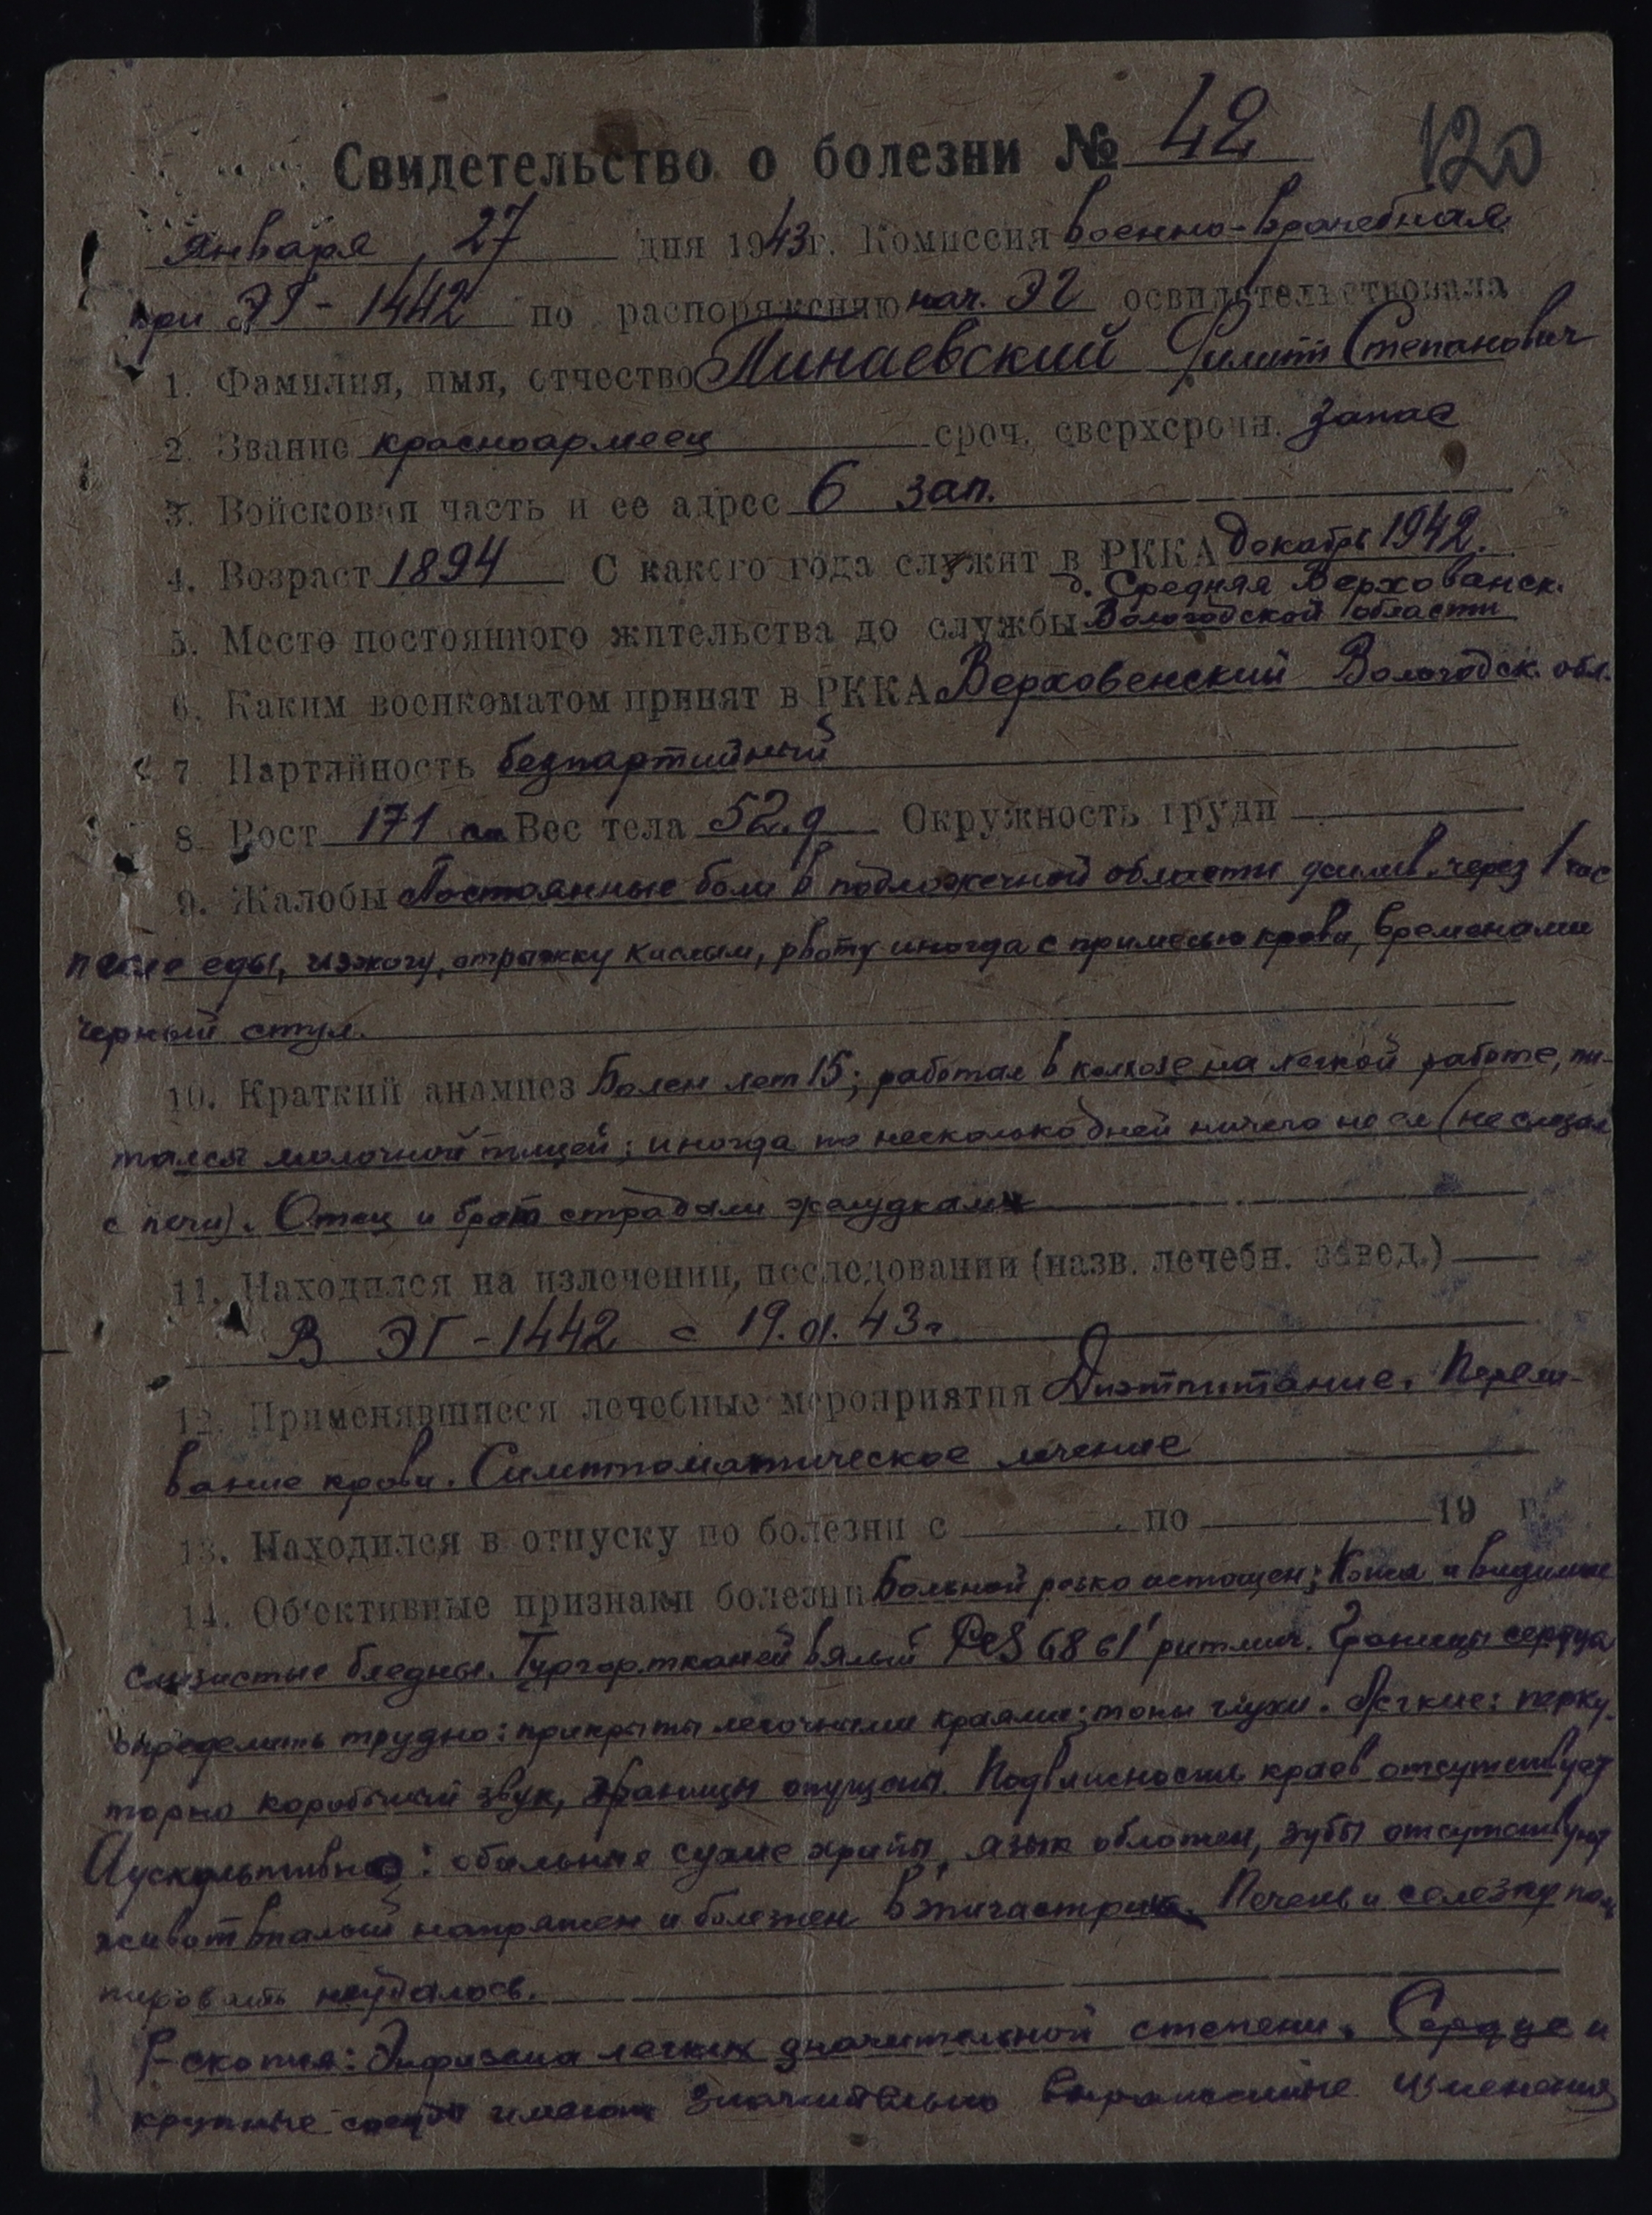 Свидетельство о болезни № 42
120
Января 27 дня 1943г. Комиссия военно-врачебная
при ЭГ-1442 по распоряжению нач. ЭГ освидетельствовала
1. Фамилия, имя, отчество Пинаевский Филипп Степанович
2. Звание красноармеец сроч. сверхсрочн. запас
3. Войсковая часть и ее адрес 6 зап.
4. Возраст 1894 С какого года служит в РККА декабрь 1942.
д. Средняя Верхованск.
5. Место постоянного жительства до службы Вологодской области
6. Каким военкоматом принят в РККА Верховенский Вологодск. обл.
7. Партийность безпартийный
8. Рост 171 см Вес тела 52,9 Окружность груди
9. Жалобы Постоянные боли в подложечной области усилив. через 1 час
после еды, изжогу, отрыжку кислым, рвоту иногда с примесью крови, временами
черный стул.
10. Краткий анамнез Болен лет 15; работал в колхозе на легкой работе, пи-
тался молочной пищей; иногда по несколько дней ничего не ел (не слезал
с печи). Отец и брат страдали желудками
11. Находился на излечении, исследовании (назв. лечебн. завед.)
В ЭГ-1442 с 19.01.43г
12. Применявшиеся лечебные мероприятия Диэтпитание. Перели-
вание крови. Симптоматическое лечение
13. Находился в отпуску по болезни с по 19 г.
14. Об'ективные признаки болезни Больной резко истощен; Кожа и видимые
слизистые бледны. Тургор тканей вялый PCS 68 в 1' ритмич. Границы сердца
определить трудно: прикрыты легочными краями; тоны глухи. Легкие: перку-
торно коробочный звук, границы опущены. Подвижность краев отсутствует
Аускультивно: обильные сухие хрипы, язык обложен, зубы отсутствуют
живот впалый напряжен и болезнен в эпигастрии. Печень и селезку паль
пировать неудалось.
R-скопия: Эмфизема легких значительной степени. Сердце и
крупные сосуды имеют значительно выраженные изменения